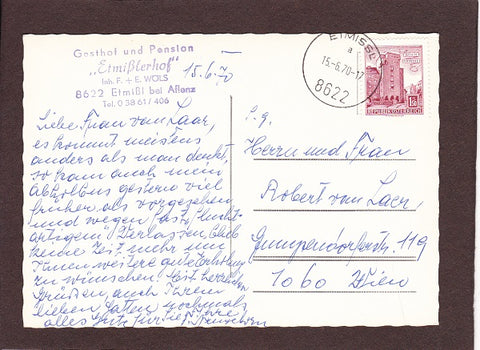 Gasthof und Pension
„Etmißlerhof"
Inh. F. + E. WÖLS
8622 Etmißl bei Aflenz
Tel. 0 38 61 / 406
15.6.70
Liebe Frau van Laar,
es kommt meistens
anders als man denkt,
so kam auch mein
gestern viel
früher als vorgesehen
und wegen
artigem Verlassen blieb
keine Zeit mehr um
Ihnen weitere gute Erholung
zu wünschen. Mit herzlichen
Grüssen, auch Ihrem
lieben Gatten nochmals
alles Gute für Sie Ihre
ETMISSL
a
15.-6.70-17
8622
REPUBLIK ÖSTERREICH
S. g.
Herrn und Frau
Robert van Laer,
Gumpendorferstr. 119
1060 Wien